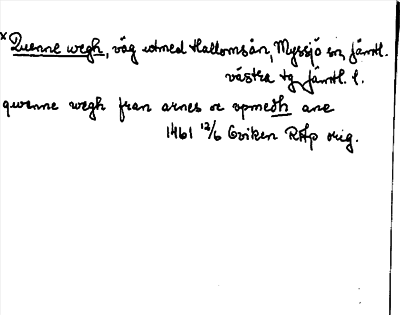 x Quenne wegh, väg utmed Hallomsån, Myssjö sn, Jämtl.
västra tg, Jämtl. l.
qwenne wegh fran arnes oc vpmedh ane
1461 12/6 Oviken RAp orig.